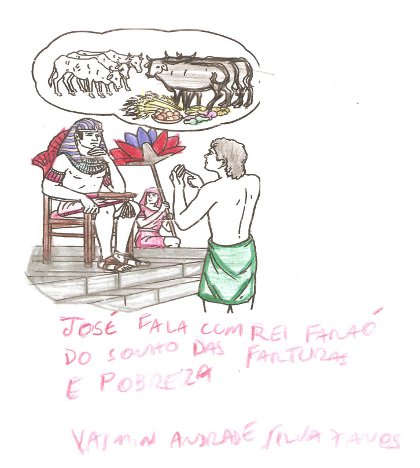 JOSÉ FALA COM REI FARAÓ
DO SONHO DAS FARTURAS
E POBREZA
ANDRADE SILVA 7 ANOS